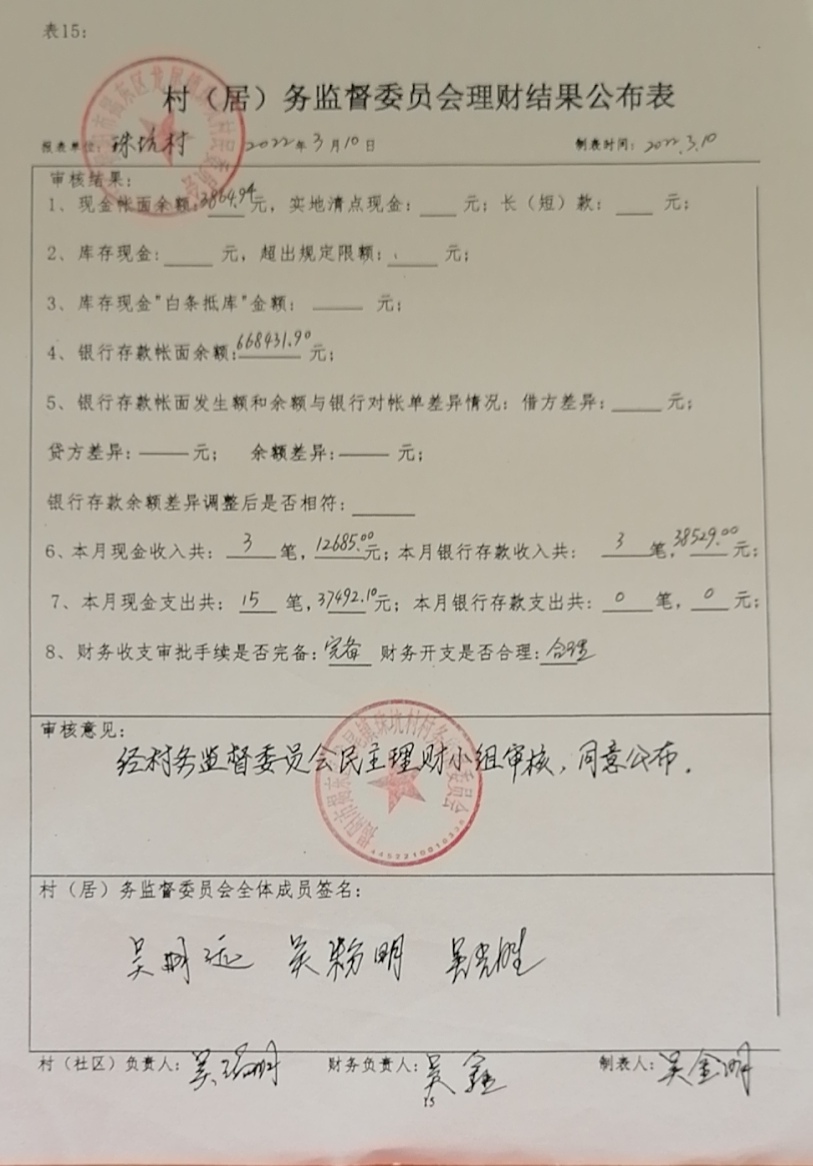 表15:
村（居）务监督委员会理财结果公布表
报表单位: 珠坑村 2022年3月10日 制表时间: 2022.3.10
审核结果:
1、现金帐面余额:3864.94元, 实地清点现金: 元; 长（短）款: 元;
2、库存现金: 元, 超出规定限额: 元;
3、库存现金"白条抵库"金额: 元;
4、银行存款帐面余额:668431.90元;
5、银行存款帐面发生额和余额与银行对帐单差异情况: 借方差异: 元;
贷方差异: 元; 余额差异: 元;
银行存款余额差异调整后是否相符:
6、本月现金收入共: 3 笔, 12685.00元; 本月银行存款收入共: 3 笔, 38529.00元;
7、本月现金支出共: 15 笔, 37492.10元; 本月银行存款支出共: 0 笔, 0 元;
8、财务收支审批手续是否完备: 完备 财务开支是否合理: 合理
审核意见:
经村务监督委员会民主理财小组审核, 同意公布.
村（居）务监督委员会全体成员签名:
吴 吴粉明 吴
村（社区）负责人: 吴 财务负责人: 吴 制表人: 吴金明
15